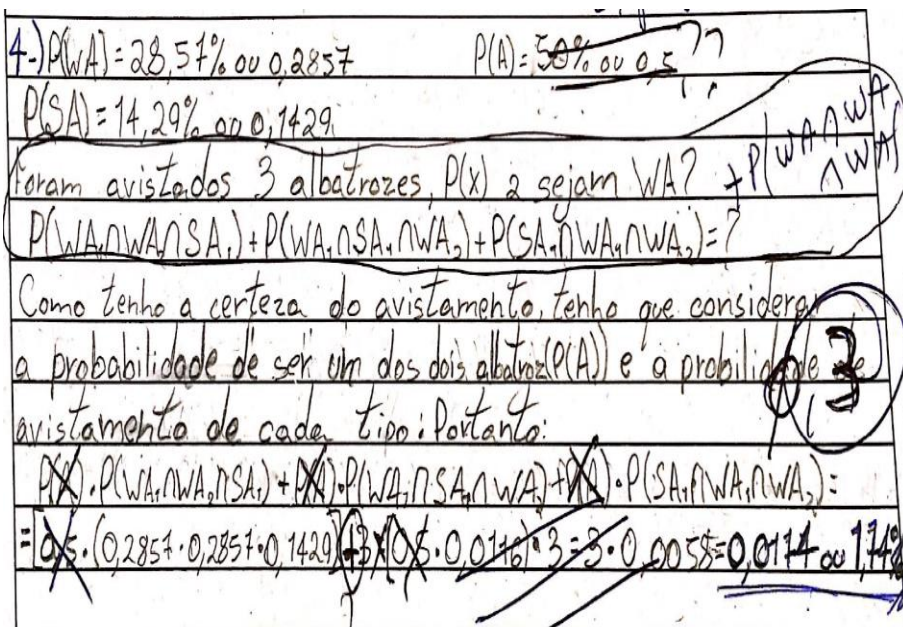 4-) P(WA) = 28,57% ou 0,2857 P(A) = 50% ou 0,5 ??
P(SA) = 14,29% ou 0,1429
Foram avistados 3 albatrozes, P(x) 2 sejam WA? + P(WA∩WA∩WA)
P(WA₁∩WA₂∩SA₁) + P(WA₁∩SA₁∩WA₂) + P(SA₁∩WA₁∩WA₂) = ?
Como tenho a certeza do avistamento, tenho que considerar
a probabilidade de ser um dos dois albatroz (P(A)) e a probilidade de
avistamento de cada tipo. Portanto:
3
P(A) . P(WA₁∩WA₂∩SA₁) + P(A) . P(WA₁∩SA₁∩WA₂) + P(A) . P(SA₁∩WA₁∩WA₂) =
= [0,5 . (0,2857 . 0,2857 . 0,1429)] +3 (0,5 . 0,0116) . 3 = 3 . 0,0058 = 0,0174 ou 1,74%